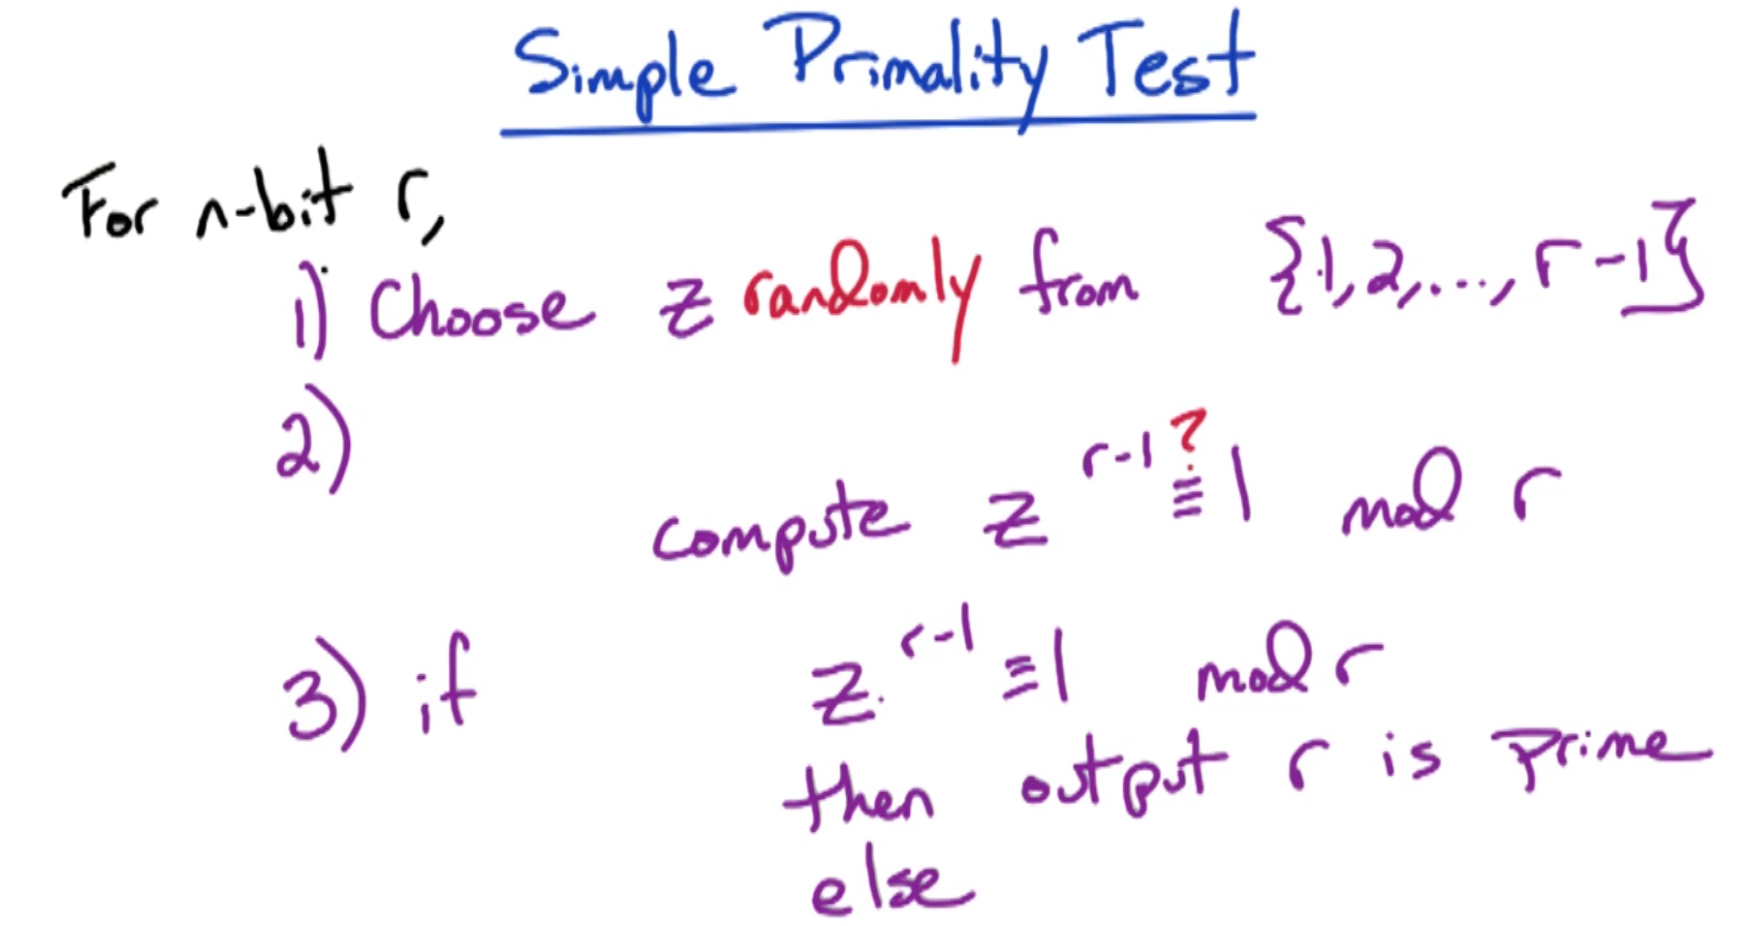 Simple Primality Test
For n-bit r,
1) Choose z randomly from {1,2,...,r-1}
2)
compute z^{r-1} ≟ 1 mod r
3) if z^{r-1} ≡ 1 mod r
then output r is prime
else